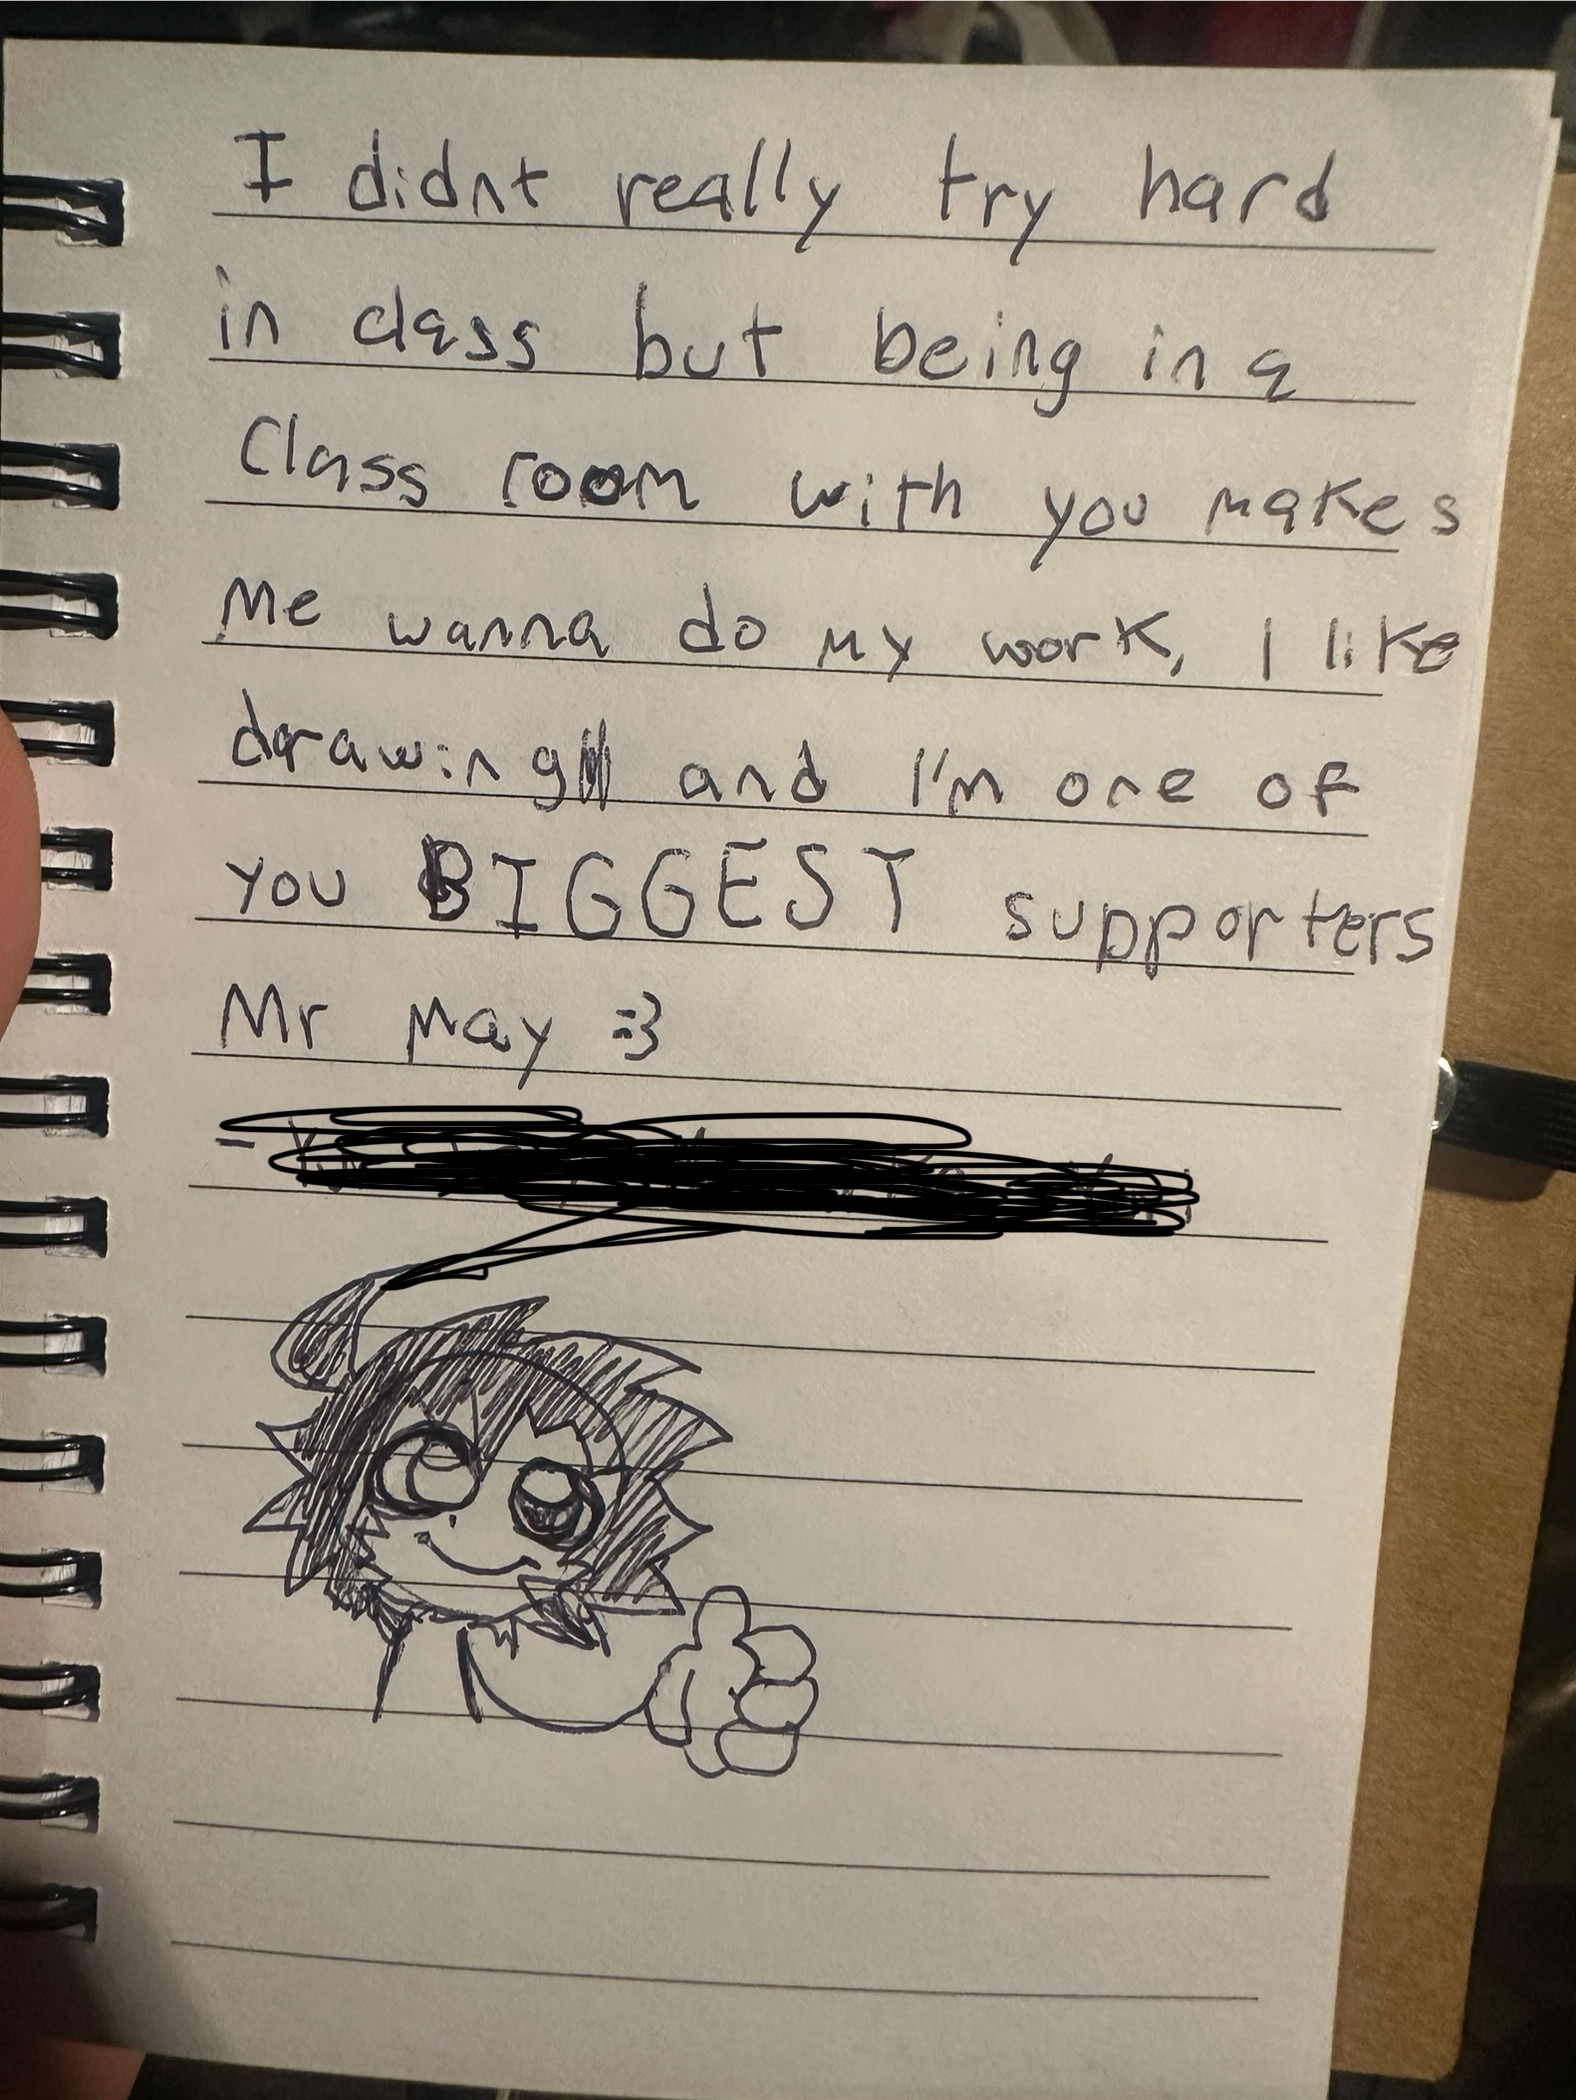 I didnt really try hard
in class but being in a
Class room with you makes
Me wanna do my work, I like
drawing and I'm one of
you BIGGEST supporters
Mr May :3